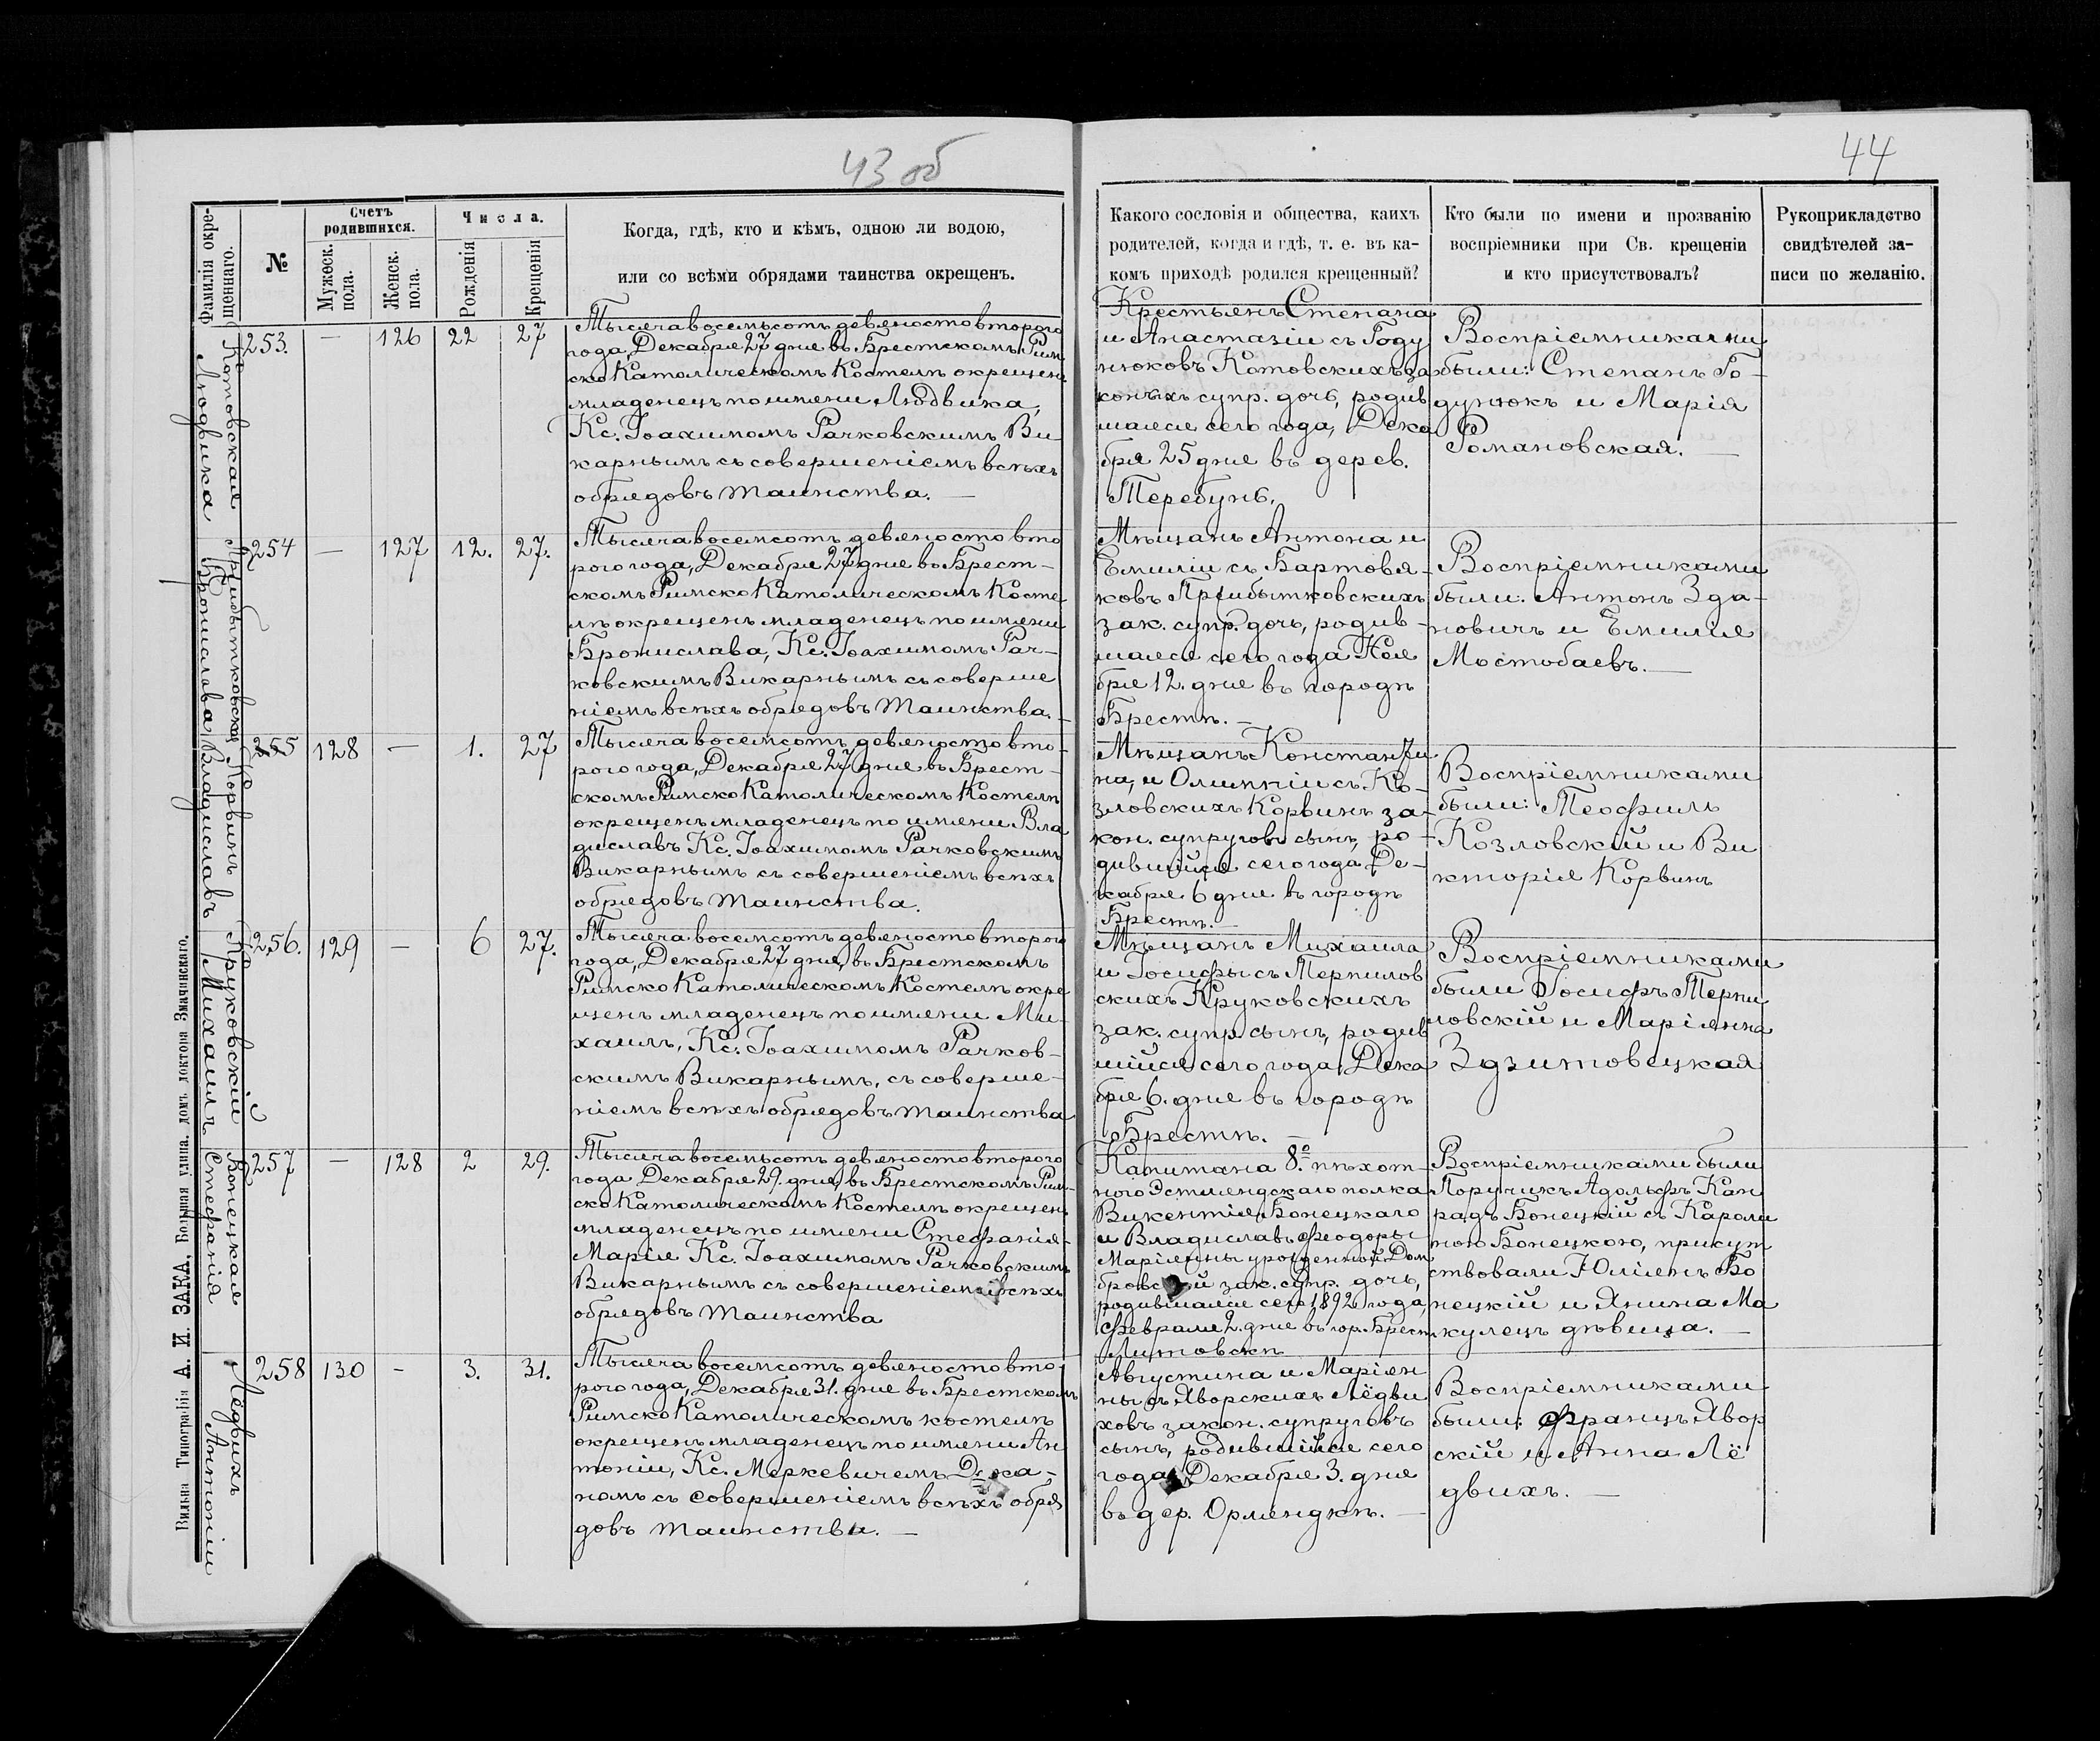 43 об
44
Фамилія окре-
щеннаго.
№
Счетъ
родившихся.
Мужеск.
пола.
Женск.
пола.
Числа.
Рожденія
Крещенія
Когда, гдѣ, кто и кѣмъ, одною ли водою,
или со всѣми обрядами таинства окрещенъ.
Какого сословія и общества, каихъ
родителей, когда и гдѣ, т. е. въ ка-
комъ приходѣ родился крещенный?
Кто были по имени и прозванію
воспріемники при Св. крещеніи
и кто присутствовалъ?
Рукоприкладство
свидѣтелей за-
писи по желанію.
Котовская
Людвика
253. — 126 22 27
Тысяча восемьсотъ девяносто второго
года, Декабря 27 дня въ Брестскомъ Рим
ско Католическомъ Костелѣ окрещенъ
младенецъ по имени Людвика,
Кс. Іоахимомъ Рачковскимъ Ви-
карнымъ съ совершеніемъ всѣхъ
обрядовъ таинства. —
Крестьянъ Степана
и Анастазіи съ Году
нюковъ Котовскихъ за
конныхъ супр. дочь, родив
шаяся сего года, Дека
бря 25 дня въ дерев.
Теребунь.
Воспріемниками
были: Степанъ Го-
дунюкъ и Марія
Романовская. —
Прибытковская
Бронислава
254 — 127 12. 27.
Тысяча восемсотъ девяносто вто
рого года, Декабря 27 дня въ Брест-
скомъ Римско Католическомъ Косте
лѣ окрещенъ младенецъ по имени
Бронислава, Кс. Іоахимомъ Рач-
ковскимъ Викарнымъ съ соверше
ніемъ всѣхъ обрядовъ таинства. —
Мѣщанъ Антона и
Емиліи съ Бартовя-
ковъ Прибытковскихъ
зак. супр. дочь, родив-
шаяся сего года Ноя
бря 12. дня въ городѣ
Брестѣ. —
Воспріемниками
были: Антонъ Зда-
новичъ и Емилія
Мостобаевъ. —
Корвинъ
Владиславъ
255 128 — 1. 27
Тысяча восемсотъ девяносто вто-
рого года, Декабря 27 дня въ Брест-
скомъ Римско Католическомъ Костелѣ
окрещенъ младенецъ по имени Вла
диславъ Кс. Іоахимомъ Рачковскимъ
Викарнымъ съ совершеніемъ всѣхъ
обрядовъ таинства.
Мѣщанъ Константи
на, и Олимпіи съ Ко-
зловскихъ Корвинъ за-
кон. супруговъ сынъ, ро-
дившійся сего года Де-
кабря 6 дня въ городѣ
Брестѣ. —
Воспріемниками
были: Теофиль
Козловскій и Ви
кторія Корвинъ
Круковскій
Михаилъ
256. 129 — 6 27.
Тысяча восемсотъ девяносто второго
года, Декабря 27 дня, въ Брестскомъ
Римско Католическомъ Костелѣ окре
щенъ младенецъ по имени Ми-
хаилъ, Кс. Іоахимомъ Рачков-
скимъ Викарнымъ, съ соверше-
ніемъ всѣхъ обрядовъ таинства
Мѣщанъ Михаила
и Іосифы съ Терпилов
скихъ Круковскихъ
зак. супр. сынъ, родив
шійся сего года, Дека
бря 6. дня въ городѣ
Брестѣ. —
Воспріемниками
были Іосифъ Терпи
ловскій и Маріянна
Здзитовецкая
Бонецкая
Стефанія
257 — 128 2 29.
Тысяча восемьсотъ девяносто второго
года Декабря 29. дня, въ Брестскомъ Рим-
ско Католическомъ Костелѣ окрещенъ
младенецъ по имени Стефанія-
Марія Кс. Іоахимомъ Рачковскимъ
Викарнымъ съ совершеніемъ всѣхъ
обрядовъ таинства
Капитана 8го пѣхот-
ного Эстляндскаго полка
Викентія Бонецкаго
и Владиславы Феодоры
Маріянны урожденной Дом
бровской зак. супр. дочь,
родившаяся сего 1892 года,
Февраля 2. дня въ гор. Брест
Литовскѣ
Воспріемниками были
Поручикъ Адольфъ Кан
радъ Бонецкій съ Кароли
ною Бонецкою, присут
ствовали Юліянъ Бо
нецкій и Янина Ма
кулецъ дѣвица. —
Лёдвихъ
Антоніи
258 130 — 3. 31.
Тысяча восемсотъ девяносто вто-
рого года, Декабря 31. дня въ Брестскомъ
Римско Католическомъ костелѣ
окрещенъ младенецъ по имени Ан
тоніи, Кс. Меркевичемъ Дека-
номъ съ совершеніемъ всѣхъ обря
довъ таинства. —
Августина и Маріян
ны съ Яворскихъ Лёдви
ховъ закон. супруговъ
сынъ, родившійся сего
года Декабря 3. дня
въ дер. Орляндкѣ. —
Воспріемниками
были: Францъ Явор
скій и Анна Лё
двихъ. —
Вильна Типографія А. И. ЗАКА, Большая улица. домъ доктора Змачинскаго.